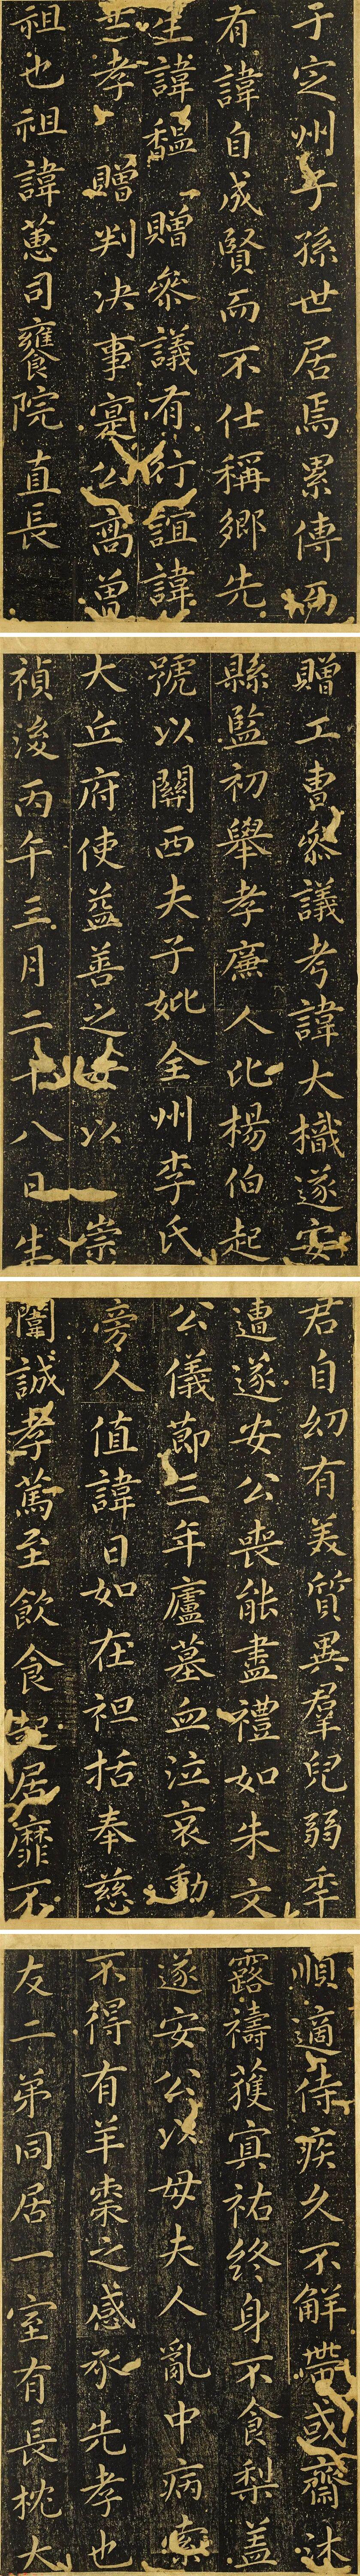 于定州子孫世居焉累傳而
有諱自成賢而不仕稱鄉先
生諱韞贈參議有行誼諱
孝贈判決事寔公高曾
祖也祖諱蔥司饔院直長
贈工曹參議考諱大機遂安
縣監初舉孝廉人比楊伯起
號以關西夫子妣全州李氏
大丘府使益善之女以崇
禎後丙午三月二十八日生
君自幼有美質異羣兒弱年
遭遂安公喪能盡禮如朱文
公儀節三年廬墓血泣哀動
旁人值諱日如在袒括奉慈
闈誠孝篤至飲食起居靡不
順適侍疾久不解帶或齋沐
露禱獲冥祐終身不食梨蓋
遂安公以母夫人亂中病索
不得有羊棗之感承先孝也
友二弟同居一室有長枕大